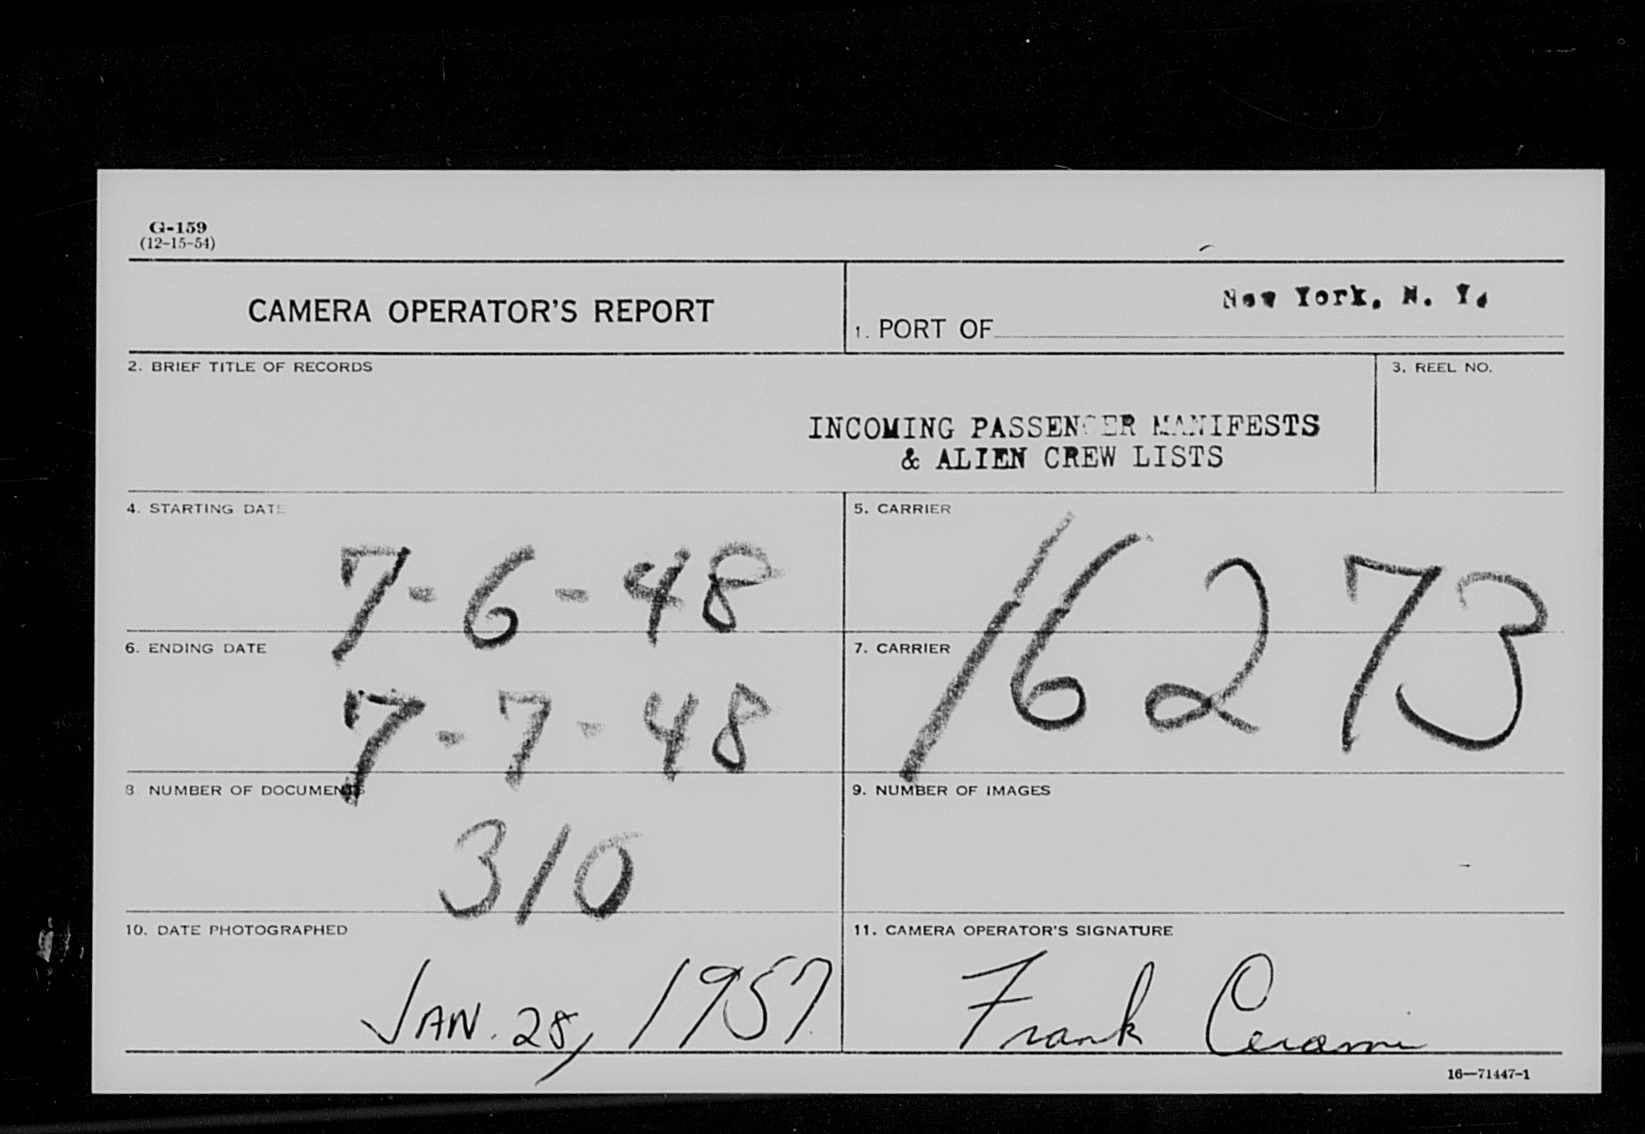 G-159
(12-15-54)
CAMERA OPERATOR'S REPORT
1. PORT OF New York, N. Y.
2. BRIEF TITLE OF RECORDS
3. REEL NO.
INCOMING PASSENGER MANIFESTS
& ALIEN CREW LISTS
4. STARTING DATE
7-6-48
5. CARRIER
16273
6. ENDING DATE
7-7-48
7. CARRIER
8 NUMBER OF DOCUMENTS
310
9. NUMBER OF IMAGES
10. DATE PHOTOGRAPHED
JAN. 28, 1957
11. CAMERA OPERATOR'S SIGNATURE
Frank Cerami
16—71447-1